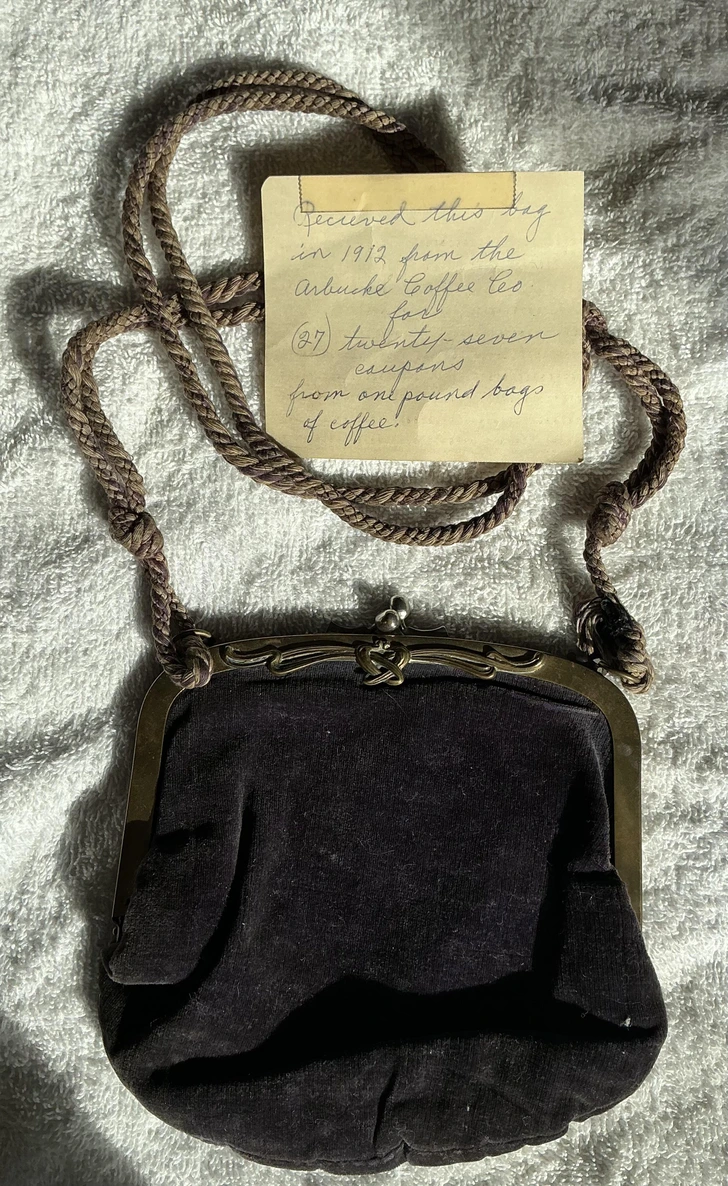 Recieved this bag
in 1912 from the
Arbucke Coffee Co
for
(27) twenty-seven
coupons
from one pound bags
of coffee.